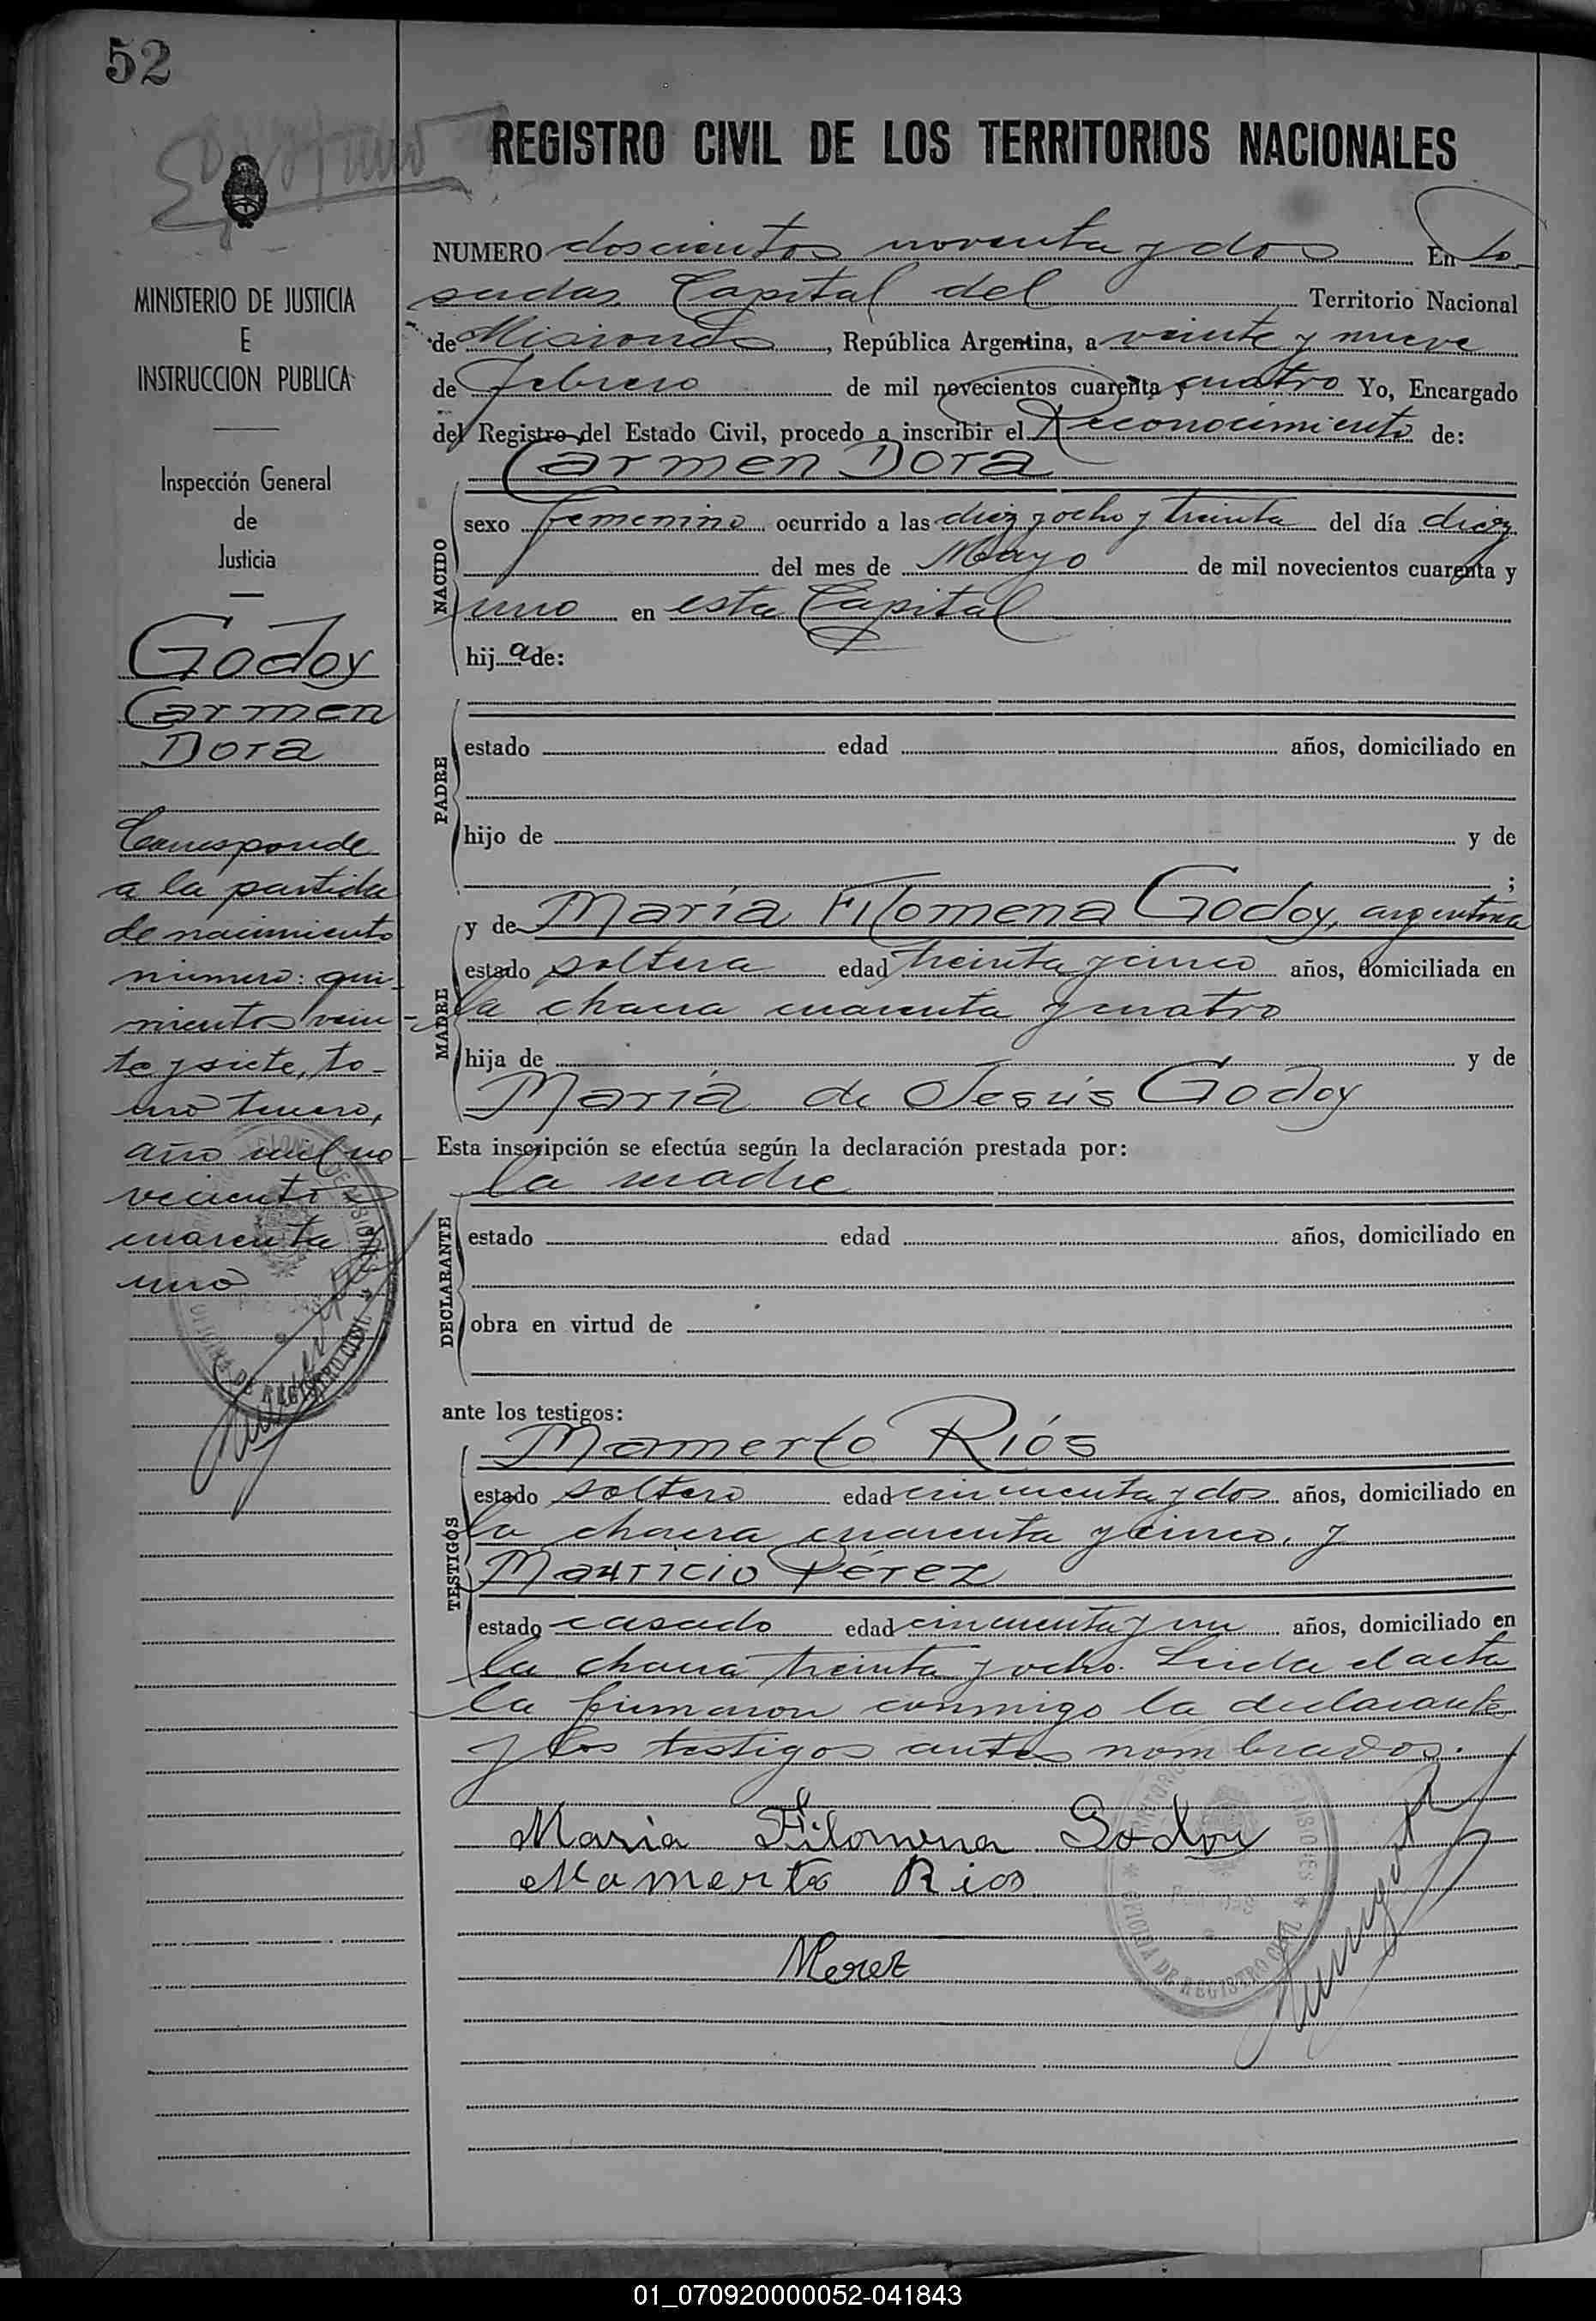 52
REGISTRO CIVIL DE LOS TERRITORIOS NACIONALES
MINISTERIO DE JUSTICIA
E
INSTRUCCION PUBLICA
Inspección General
de
Justicia
Godoy
Carmen
Dora
Corresponde
a la partida
de nacimiento
número: qui-
nientos vein-
te y siete, to-
mo tercero,
año mil no-
vecientos
cuarenta y
uno
NUMERO doscientos noventa y dos En Po-
sadas Capital del Territorio Nacional
de Misiones, República Argentina, a veinte y nueve
de Febrero de mil novecientos cuarenta y cuatro Yo, Encargado
del Registro del Estado Civil, procedo a inscribir el Reconocimiento de:
Carmen Dora
NACIDO
sexo femenino ocurrido a las diez y ocho y treinta del día diez
del mes de Mayo de mil novecientos cuarenta y
uno en esta Capital
hija de:
PADRE
estado edad años, domiciliado en
hijo de y de
;
MADRE
y de María Filomena Godoy, argentina
estado soltera edad treinta y cinco años, domiciliada en
la chacra cuarenta y cuatro
hija de y de
María de Jesús Godoy
Esta inscripción se efectúa según la declaración prestada por:
la madre
DECLARANTE
estado edad años, domiciliado en
obra en virtud de
ante los testigos:
TESTIGOS
Mamerto Ríos
estado soltero edad cincuenta y dos años, domiciliado en
la chacra cuarenta y cinco, y
Mauricio Pérez
estado casado edad cincuenta y un años, domiciliado en
la chacra treinta y ocho. Leída el acta
la firmaron conmigo la declarante
y los testigos antes nombrados.
Maria Filomena Godoy
Mamerto Rios
MPerez
OFICINA DE REGISTRO CIVIL
01_070920000052-041843